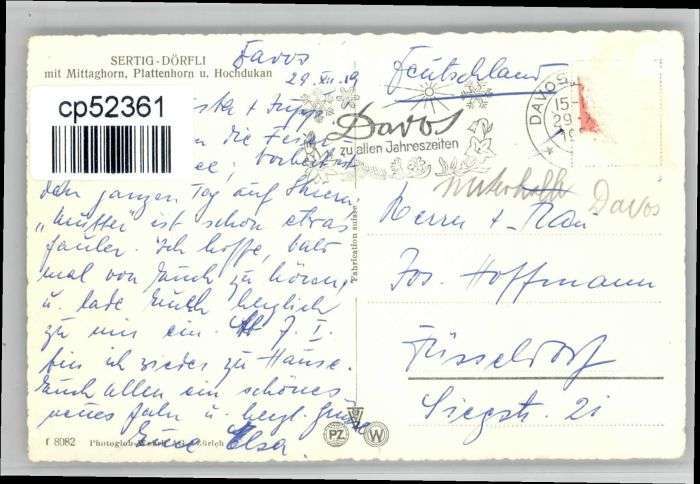 SERTIG-DÖRFLI
mit Mittaghorn, Plattenhorn u. Hochdukan
Davos
29. XII. 19
cp52361
die
den ganzen Tag auf Skiern
„Mutter" ist schon etwas
fauler. Ich hoffe, bald
mal von Euch zu hören,
u. lade Euch herzlich
zu mir ein. 7. I.
bin ich wieder zu Hause.
Euch allen ein schönes
neues Jahr u. herzl. Grüße
Eure Elsa.
f 8082 Photoglob
Fabrication suisse
PZ
W
Deutschland
Davos
zu allen Jahreszeiten
DAVOS
15-
29.
Davos
Herrn + Frau
Jos. Hoffmann
Düsseldorf
Siegstr. 21